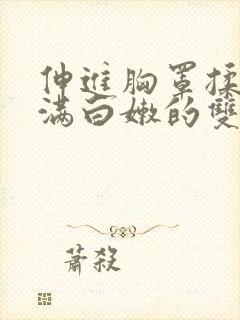 伸進胸罩揉
满白嫩的雙
蕭殺